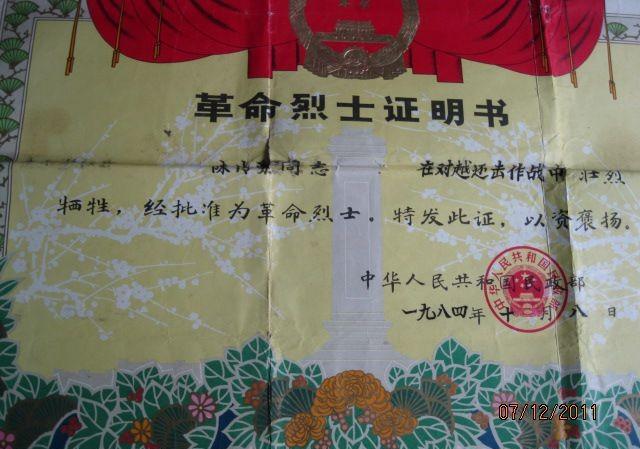 革命烈士证明书
同志 在对越还击作战中 壮烈
牺牲，经批准为革命烈士。特发此证，以资褒扬。
中华人民共和国民政部
一九八四年十 月八日
07/12/2011